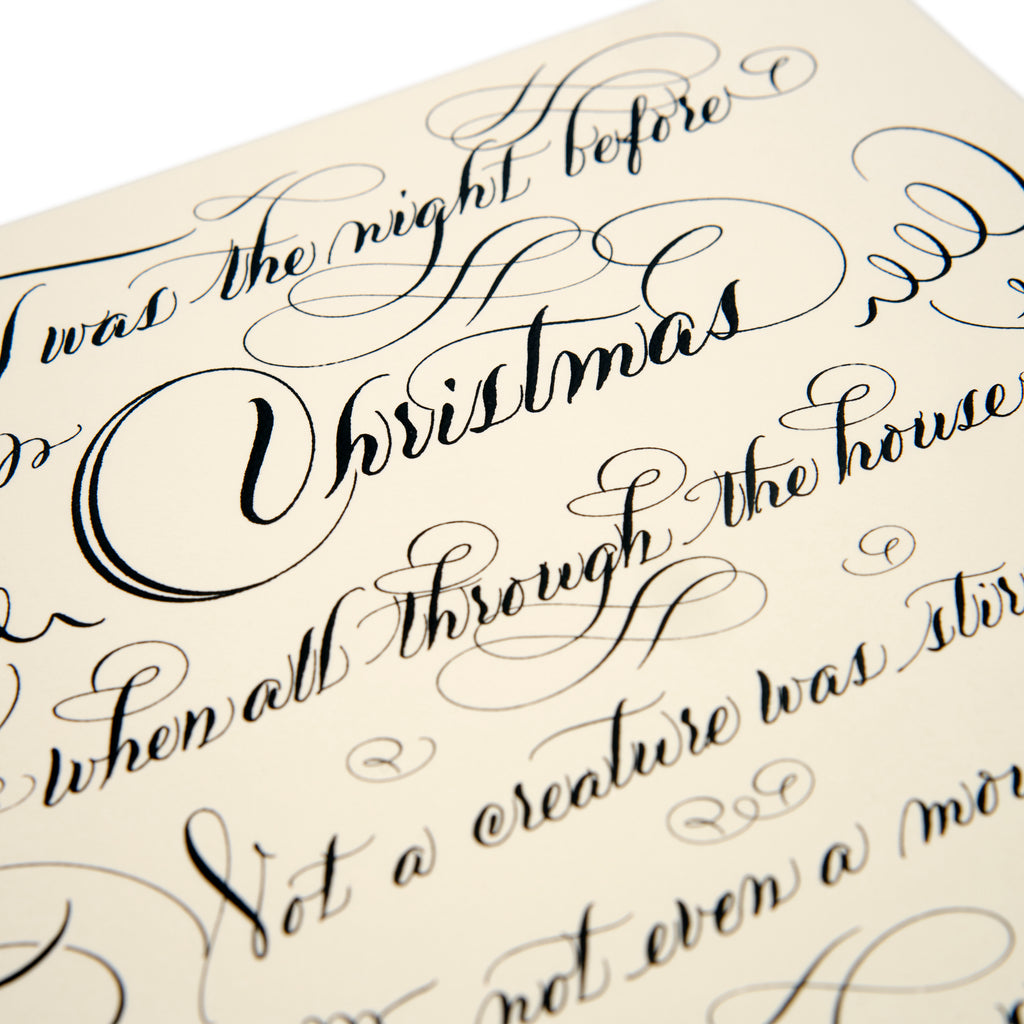 Twas the night before
Christmas
when all through the house
Not a creature was stir
not even a mou